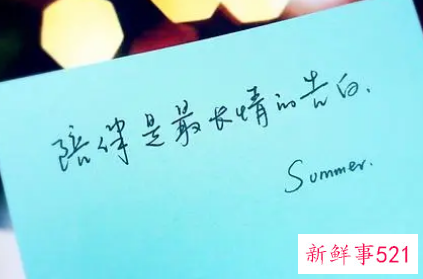 陪伴是最长情的告白.
Summer.
新鲜事521